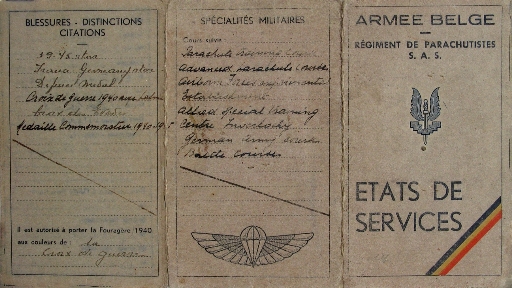 BLESSURES - DISTINCTIONS
CITATIONS
39.45 star
France Germany star
Defence Medal
Croix de guerre 1940 avec palme
Médaille Commemorative 1940-1945
Il est autorisé à porter la Fouragère 1940
aux couleurs de : la
Croix de guerre
SPÉCIALITÉS MILITAIRES
Cours suivi :
Parachute
Advanced parachute course
Airborn Forces experimental
Establishment
Allied special training
Centre Inverlochy
German
course
ARMEE BELGE
RÉGIMENT DE PARACHUTISTES
S. A. S.
ETATS DE
SERVICES